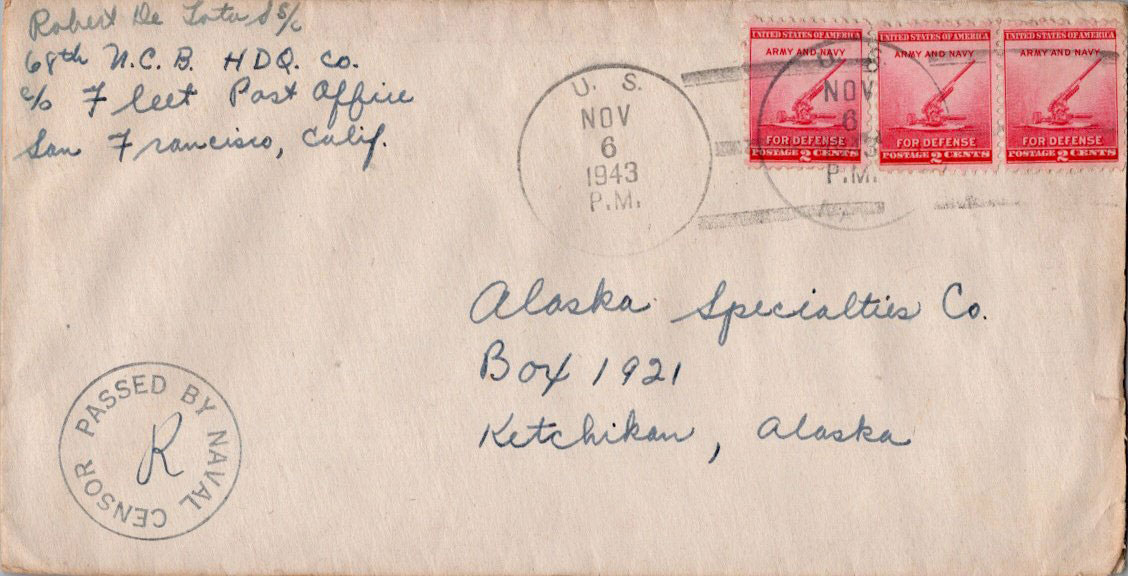 Robert De Tota S S/c
68th N.C.B. HDQ. Co.
c/o Fleet Post Office
San Francisco, Calif.
U. S.
NOV
6
1943
P.M.
U. S.
NOV
6
1943
P.M.
UNITED STATES OF AMERICA
ARMY AND NAVY
FOR DEFENSE
POSTAGE 2 CENTS
UNITED STATES OF AMERICA
ARMY AND NAVY
FOR DEFENSE
POSTAGE 2 CENTS
UNITED STATES OF AMERICA
ARMY AND NAVY
FOR DEFENSE
POSTAGE 2 CENTS
Alaska Specialties Co.
Box 1921
Ketchikan, Alaska
PASSED BY NAVAL CENSOR
R